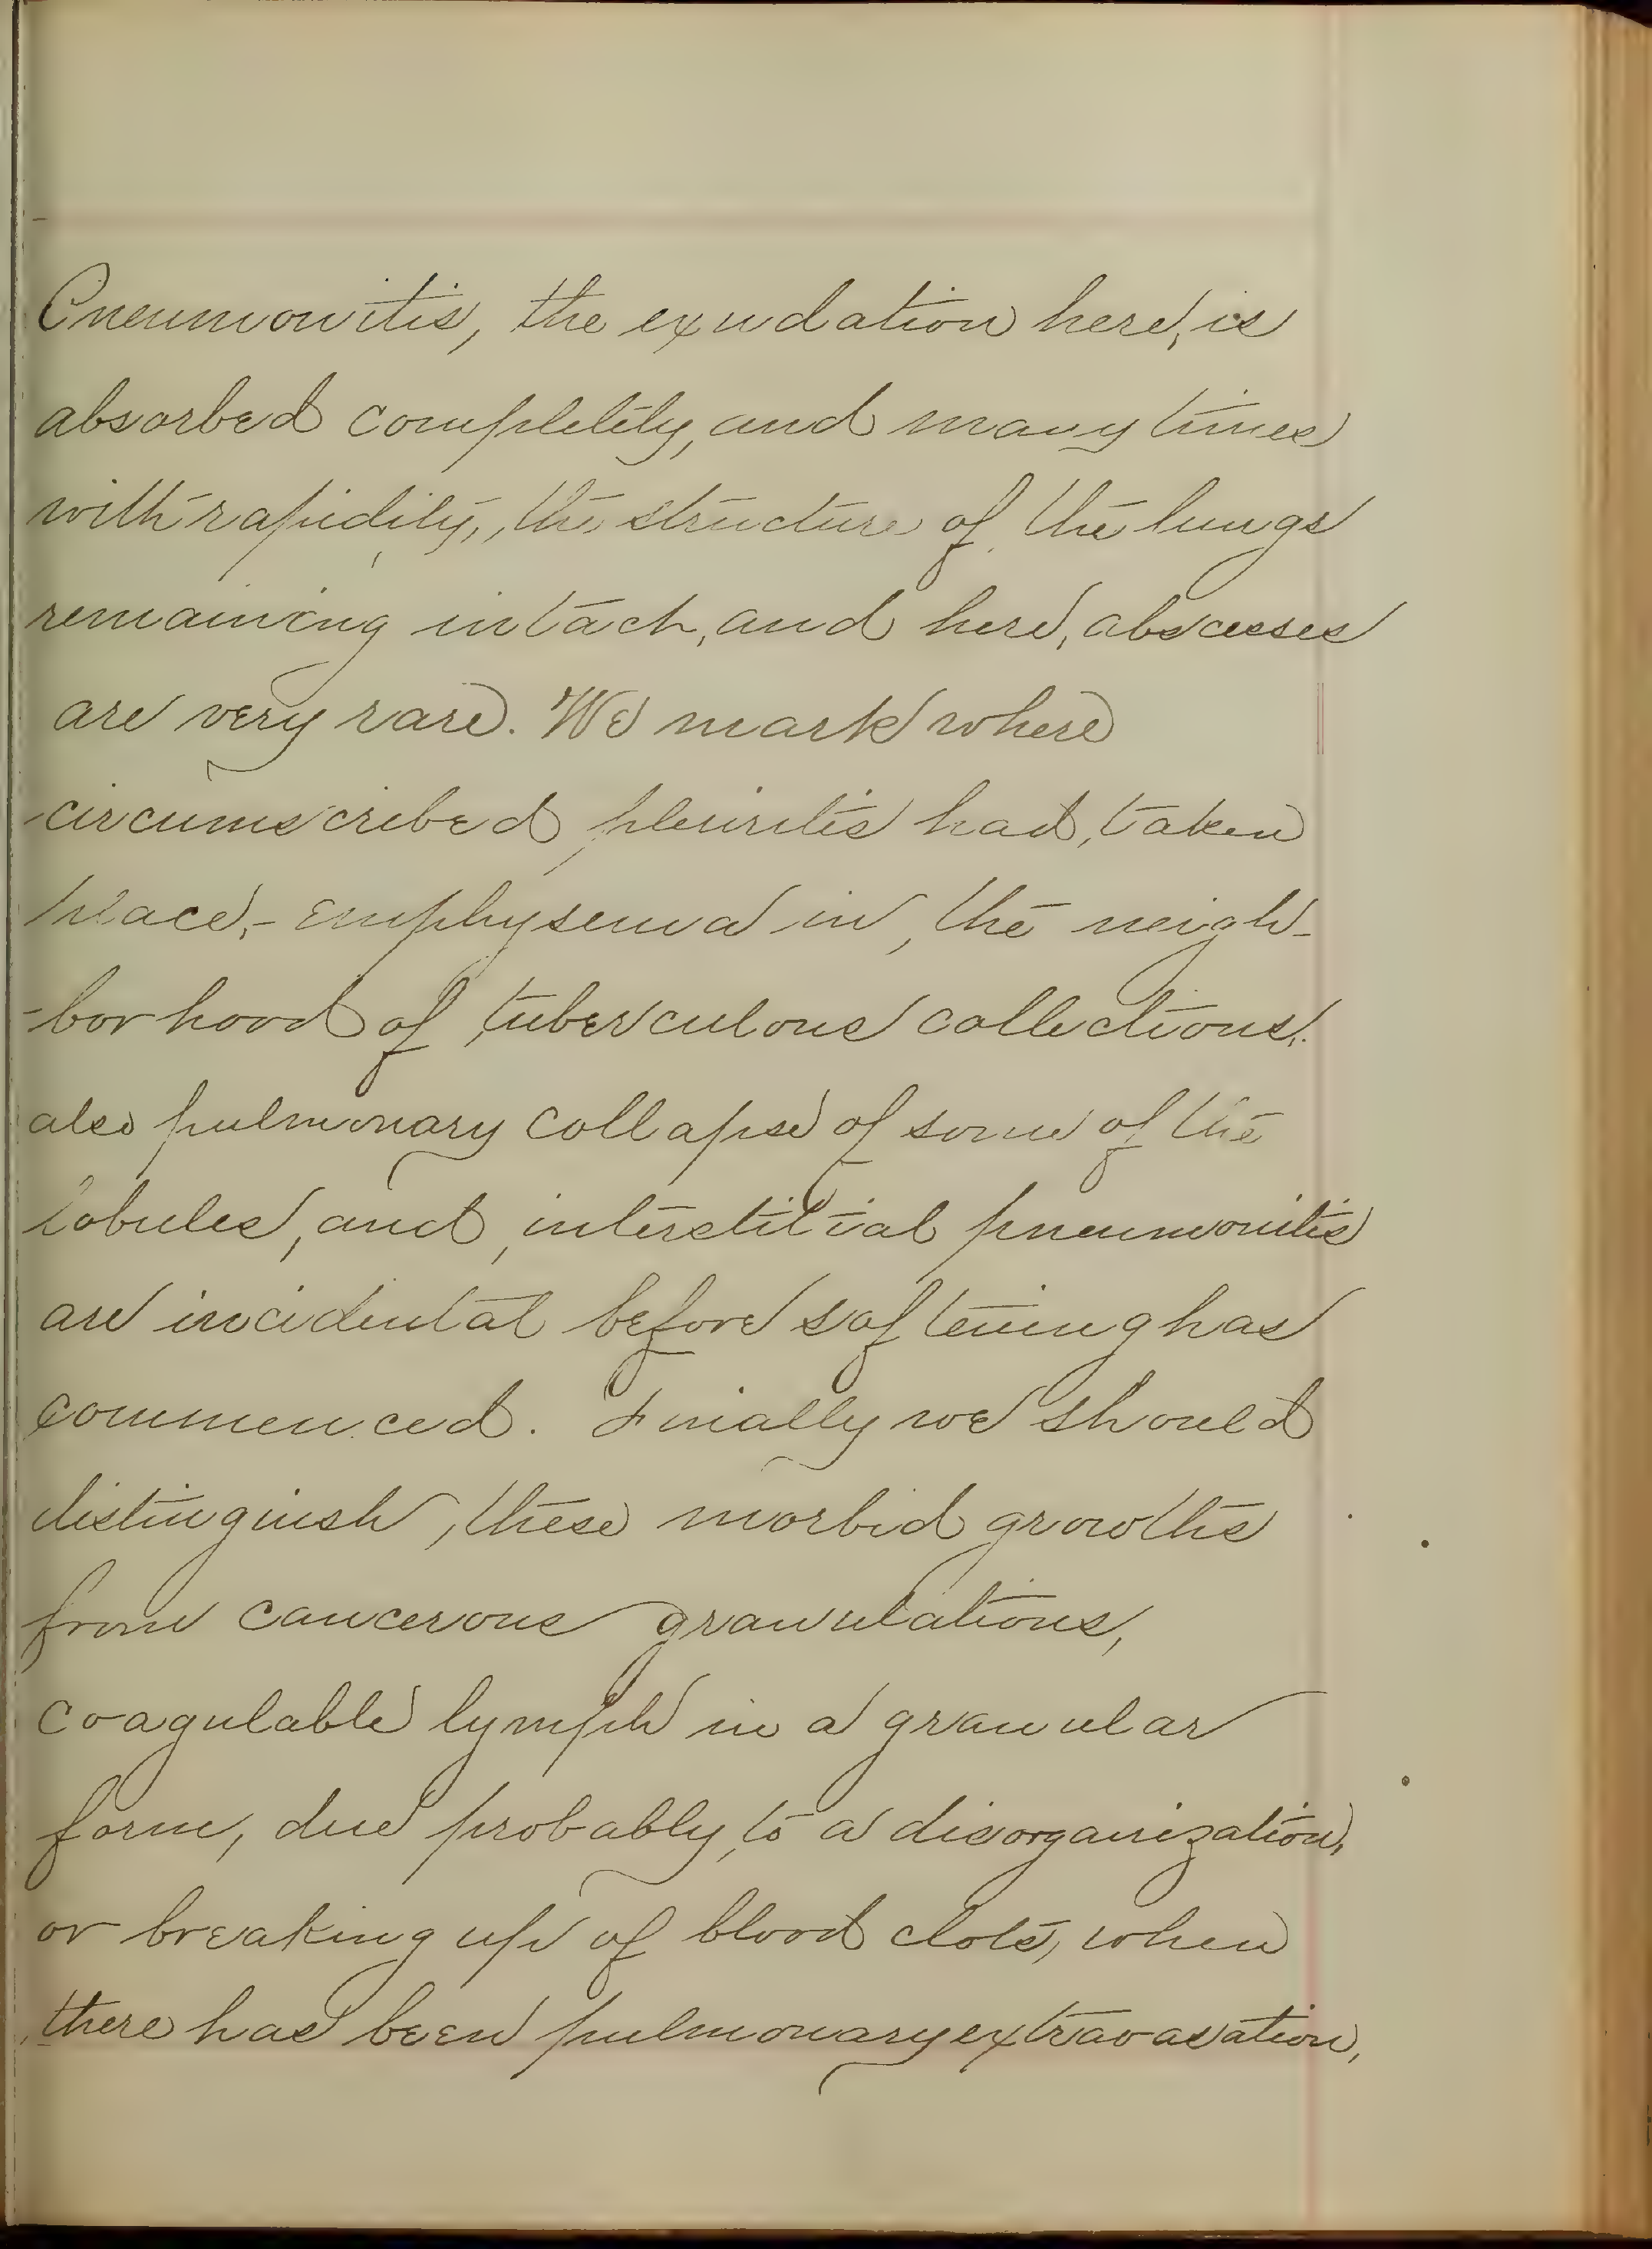 Pneumonitis, the exudation here, is
absorbed completely, and many times
with rapidity, the structure of the lungs
remaining intact, and here, abscesses
are very rare. We mark where
circumscribed pleuritis had, taken
place,- emphysema in, the neigh-
-borhood of tuberculous collections,
also pulmonary collapse of some of the
lobules, and interstitial pneumonitis
are incidental before softening has
commenced. Finally we should
distinguish, these morbid growths
from cancerous granulations,
coagulable lymph in a granular
form, due probably, to a disorganization,
or breaking up of blood clots, when
there has been pulmonary extravasation,